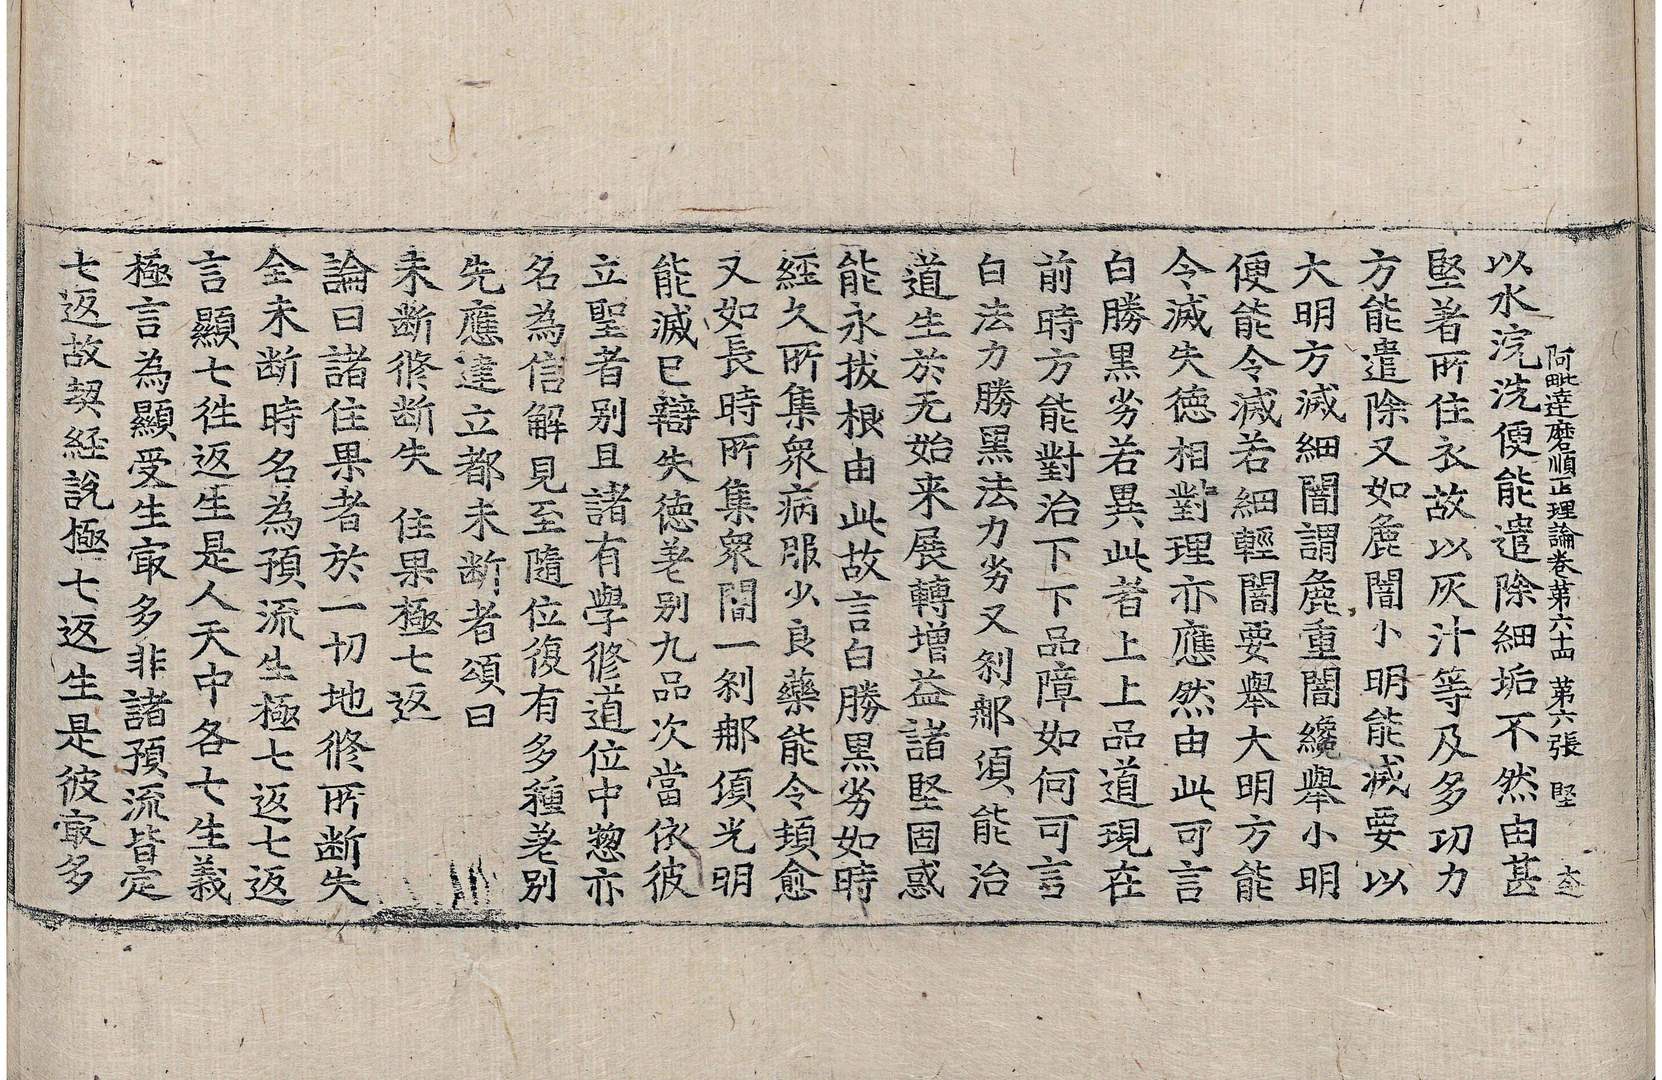 阿毗達磨順正理論卷第六十四 第六張 堅
以水浣洗便能遣除細垢不然由甚
堅著所住衣故以灰汁等及多功力
方能遣除又如麁闇小明能滅要以
大明方滅細闇謂麁重闇纔舉小明
便能令滅若細輕闇要舉大明方能
令滅失德相對理亦應然由此可言
白勝黑劣若異此者上上品道現在
前時方能對治下下品障如何可言
白法力勝黑法力劣又剎那須能治
道生於无始来展轉增益諸堅固惑
能永拔根由此故言白勝黑劣如時
經久所集衆病服少良藥能令頓愈
又如長時所集衆闇一剎那須光明
能滅已辯失德差别九品次當依彼
立聖者别且諸有學修道位中惣亦
名為信解見至隨位復有多種差别
先應建立都未断者頌曰
未断修断失　住果極七返
論曰諸住果者於一切地修所断失
全未断時名為預流生極七返七返
言顯七徃返生是人天中各七生義
極言為顯受生㝡多非諸預流皆定
七返故契経說極七返生是彼㝡多